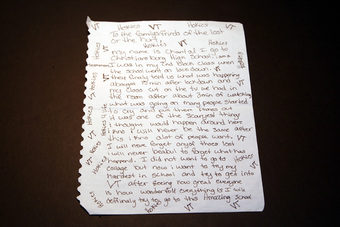 Hokies VT Hokies VT Hokies
To the familys/frinds of the lost
or the hurt,
Hokies VT Hokies
my name is Chantal I go to
Christiansburg High School. I
I was in my 2nd Block class when
the school went on lockdown.
they finaly told us what was happening
about 15 min after lockdown and
my class cut on the tv we had in
the room after about 3 min of watching
what was going on many people started
to cry and put there faces out
it was one of the scaryest things
I thought would happen around here
I kno I will never be the same after
this I kno alot of people wont,
I will never forget any of those lost
I will never beabul to forget what has
happend. I did not want to go to
collage but now I want to try my
hardest in school and try to get into
VT after seeing how great everyone
is how wonderfull everything is I will
deffinitly try to go to this Amazing School
VT Hokies VT Hokies VT